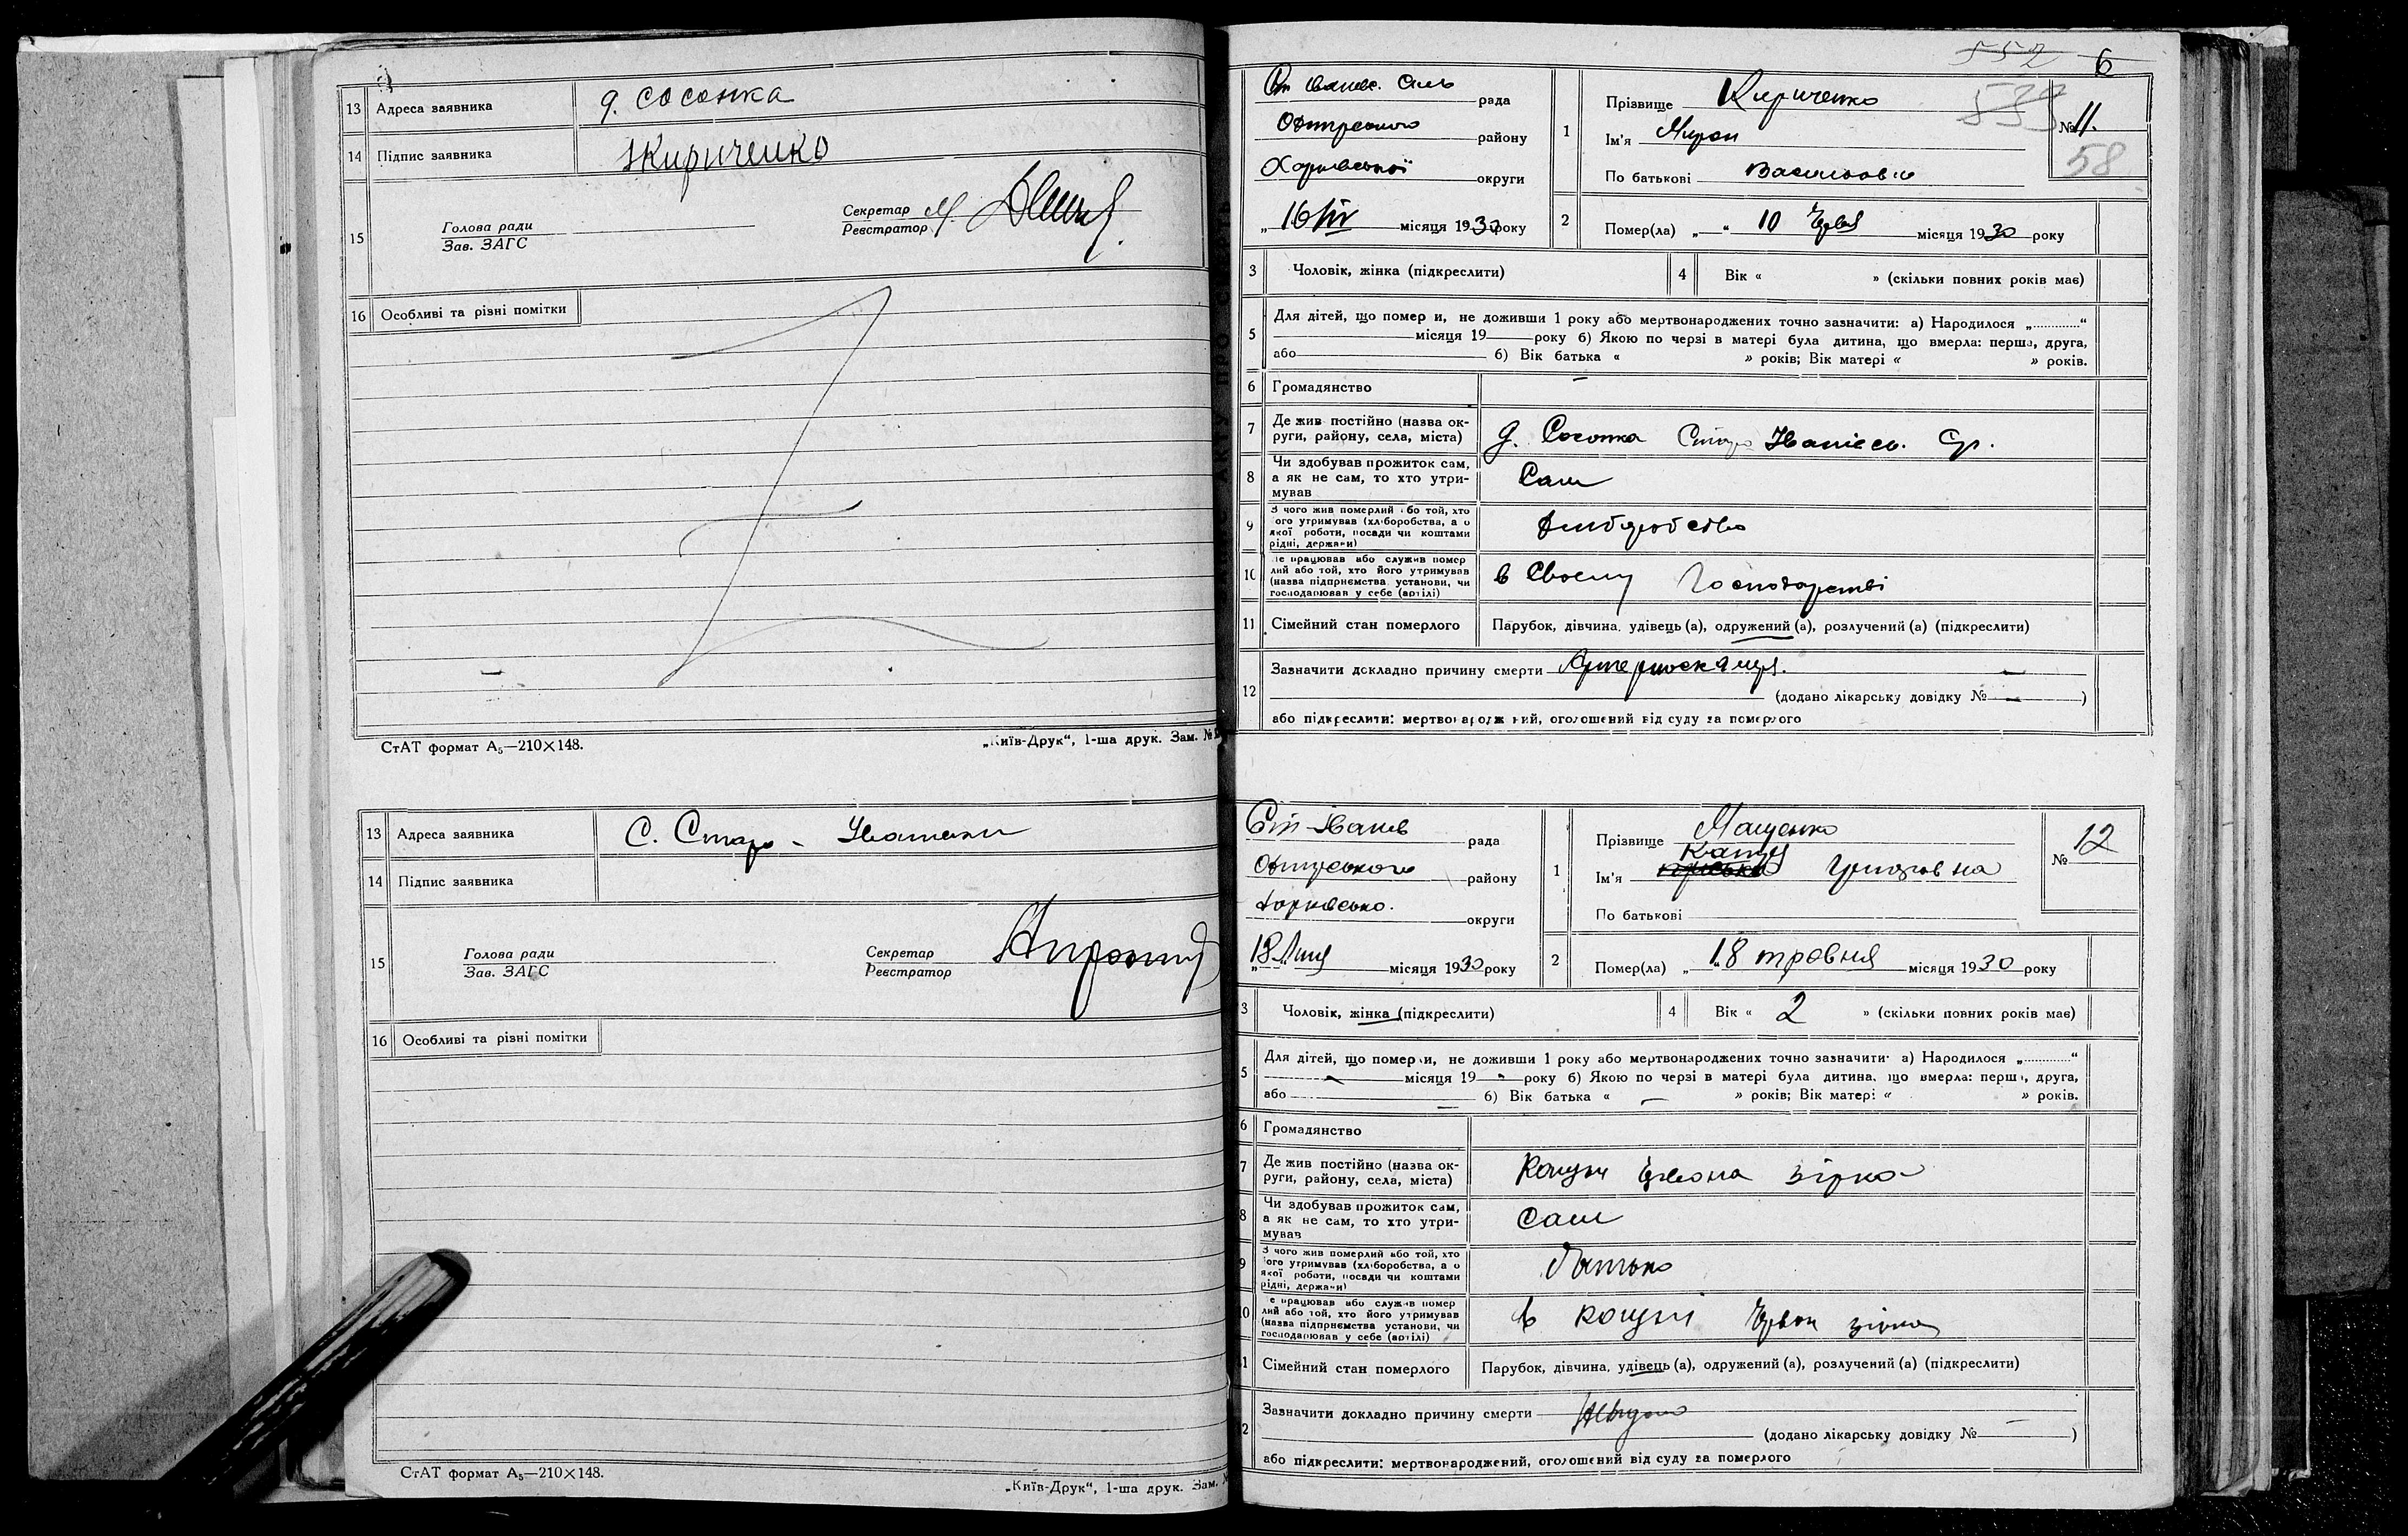 13 Адреса заявника д. сосонка
14 Підпис заявника Кириченко
15 Голова ради
Зав. ЗАГС
Секретар
Реєстратор
16 Особливі та різні помітки
СтАТ формат А₅—210×148.
„Київ-Друк“, 1-ша друк. Зам. №
13 Адреса заявника С. Старо - Иванівки
14 Підпис заявника
15 Голова ради
Зав. ЗАГС
Секретар
Реєстратор
16 Особливі та різні помітки
СтАТ формат А₅—210×148.
„Київ-Друк“, 1-ша друк. Зам.
552 6
539
рада
району
Харківської округи
„16 IV місяця 1930 року
1 Прізвище Кириченко
Ім'я Мирон
По батькові Васильович
№ 11.
58
2 Помер(ла) „ “ 10 місяця 1930 року
3 Чоловік, жінка (підкреслити)
4 Вік « » (скільки повних років має)
5 Для дітей, що померли, не доживши 1 року або мертвонароджених точно зазначити: а) Народилося „.............“
місяця 19 року б) Якою по черзі в матері була дитина, що вмерла: перша, друга,
або б) Вік батька « » років; Вік матері « » років.
6 Громадянство -
7 Де жив постійно (назва ок-
руги, району, села, міста) д. Сосонка Старо Іванівсь. Ср.
8 Чи здобував прожиток сам,
а як не сам, то хто утри-
мував Сам
9 З чого жив померлий або той, хто
його утримував (хліборобства, а о
якої роботи, посади чи коштами
рідні, держави) хліборобство
10 Де працював або служив помер
лий або той, хто його утримував
(назва підприємства установи, чи
господарював у себе (артілі) в Своєму Господарстві
11 Сімейний стан померлого Парубок, дівчина, удівець (а), одружений (а), розлучений (а) (підкреслити)
12 Зазначити докладно причину смерти
(додано лікарську довідку № — )
або підкреслити: мертвонароджений, оголошений від суду за померлого
Ст-Іванів рада
району
Харківсько. округи
„18 місяця 1930 року
1 Прізвище Мащенко
Ім'я Катря Григоровна
По батькові
№ 12
2 Помер(ла) „ “ 18 травня місяця 1930 року
3 Чоловік, жінка (підкреслити)
4 Вік « 2 » (скільки повних років має)
5 Для дітей, що померли, не доживши 1 року або мертвонароджених точно зазначити: а) Народилося „.............“
місяця 19 - року б) Якою по черзі в матері була дитина, що вмерла: перша, друга,
або — б) Вік батька « — » років; Вік матері « » років.
6 Громадянство
7 Де жив постійно (назва ок-
руги, району, села, міста) Комуни Червона зірка
8 Чи здобував прожиток сам,
а як не сам, то хто утри-
мував Сам
9 З чого жив померлий або той, хто
його утримував (хліборобства, а о
якої роботи, посади чи коштами
рідні, держави) батько
10 Де працював або служив помер
лий або той, хто його утримував
(назва підприємства установи, чи
господарював у себе (артілі) в комуні Червон зірка
11 Сімейний стан померлого Парубок, дівчина, удівець (а), одружений (а), розлучений (а) (підкреслити)
12 Зазначити докладно причину смерти
(додано лікарську довідку № — )
або підкреслити: мертвонароджений, оголошений від суду за померлого